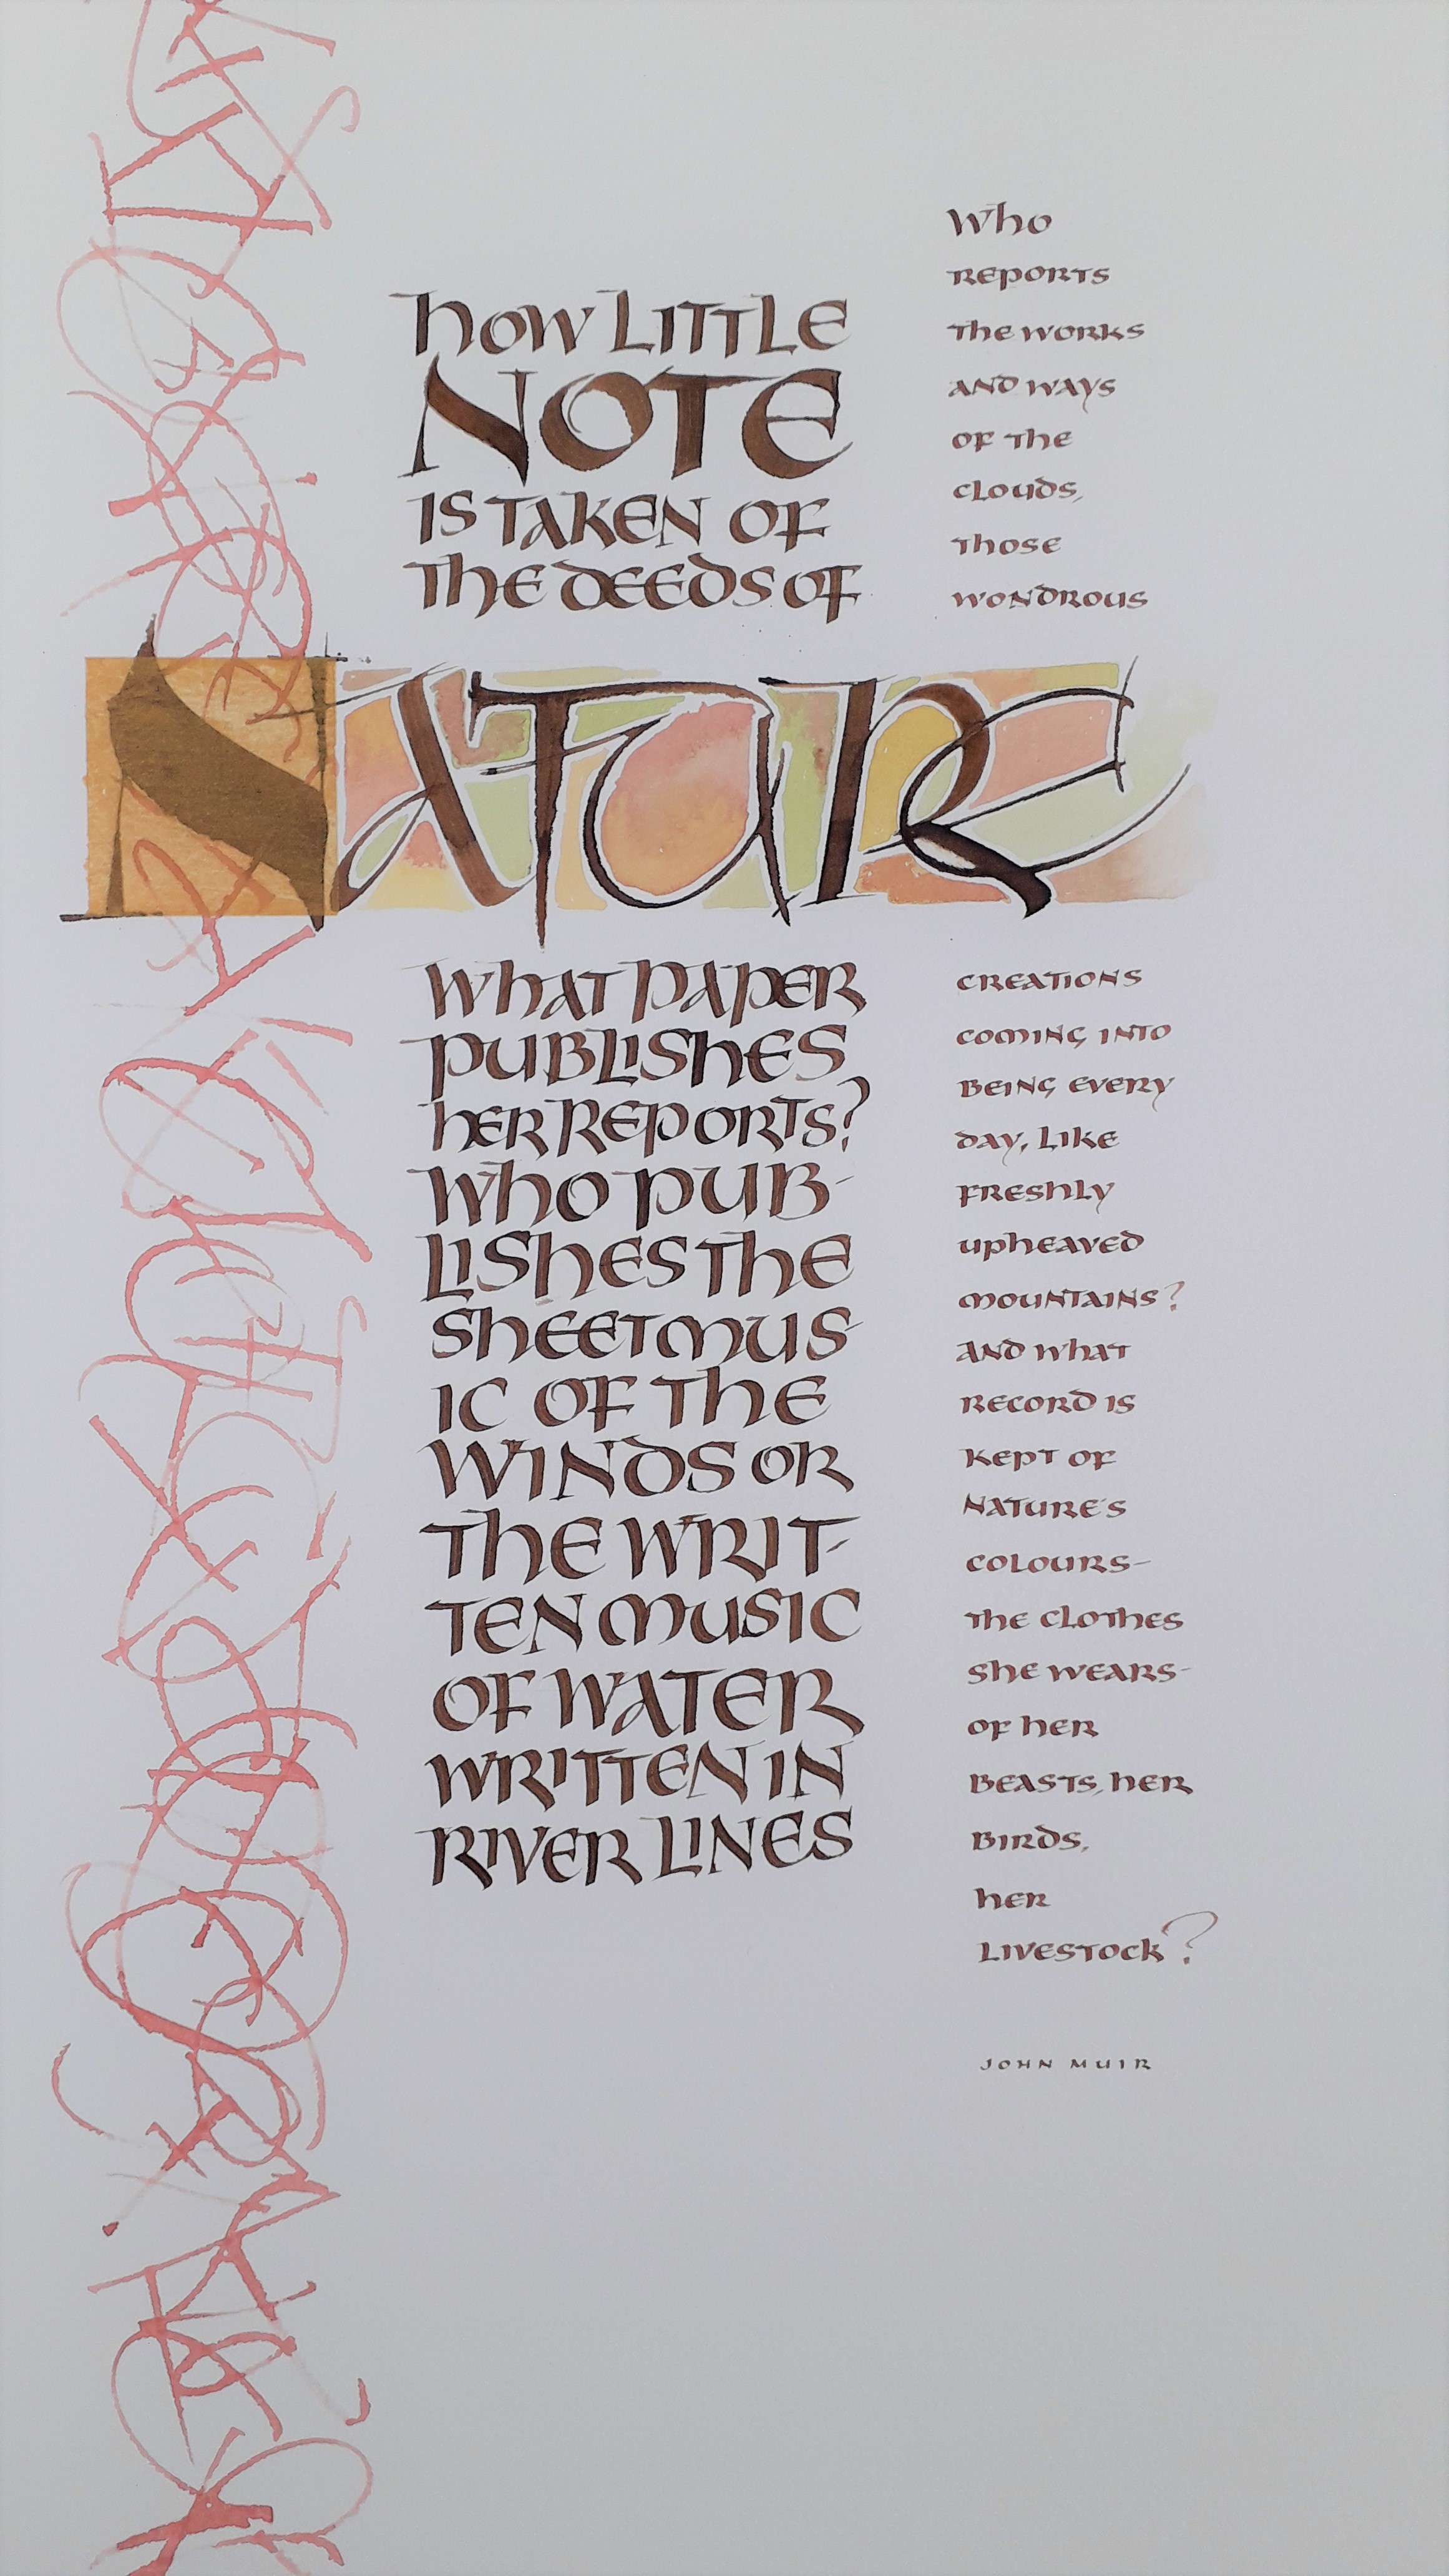 how little
note
is taken of
the deeds of
Nature
what paper
publishes
her reports?
who pub-
lishes the
sheet mus-
ic of the
winds or
the writ-
ten music
of water
written in
river lines
who
reports
the works
and ways
of the
clouds,
those
wondrous
creations
coming into
being every
day, like
freshly
upheaved
mountains?
and what
record is
kept of
nature's
colours-
the clothes
she wears-
of her
beasts, her
birds,
her
livestock?
JOHN MUIR